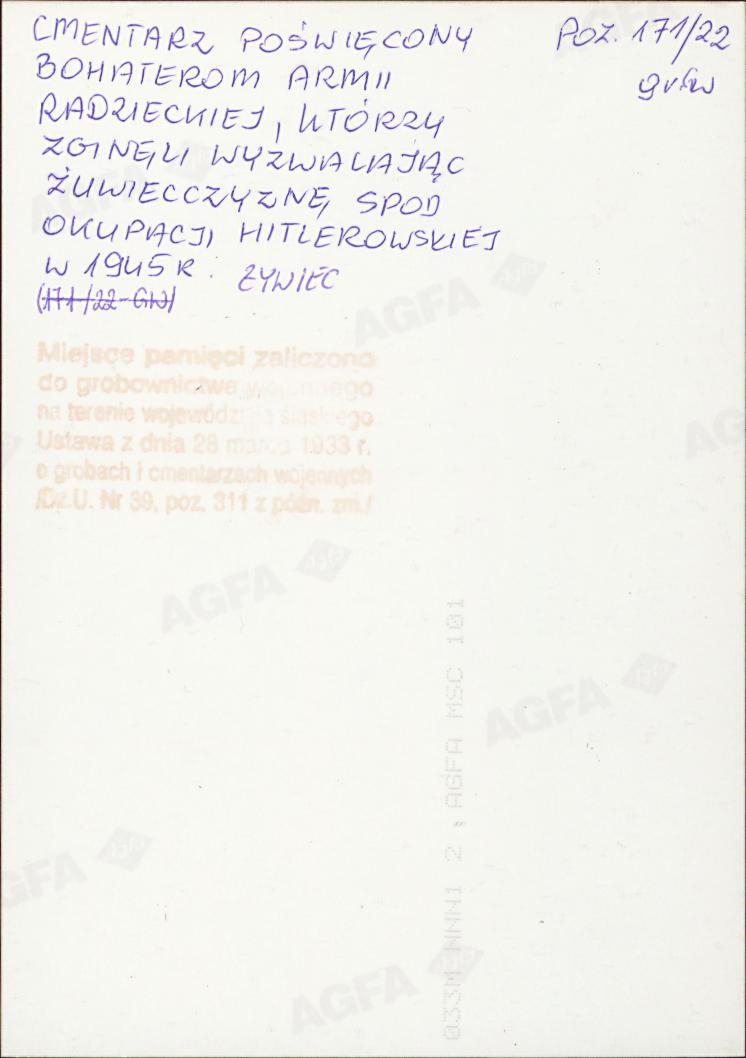 CMENTARZ POŚWIĘCONY
BOHATEROM ARMII
RADZIECKIEJ, KTÓRZY
ZGINĘLI WYZWALAJĄC
ŻYWIECCZYZNĘ SPOD
OKUPACJI HITLEROWSKIEJ
W 1945 R. ŻYWIEC
(171/22-GW)
POZ. 171/22
Miejsce pamięci zaliczono
do grobownictwa wojennego
na terenie województwa śląskiego
Ustawa z dnia 28 marca 1933 r.
o grobach i cmentarzach wojennych
/Dz.U. Nr 39, poz. 311 z późn. zm./
AGFA
AGFA
AGFA
AGFA
AGFA
AGFA
2 AGFA MSC 101